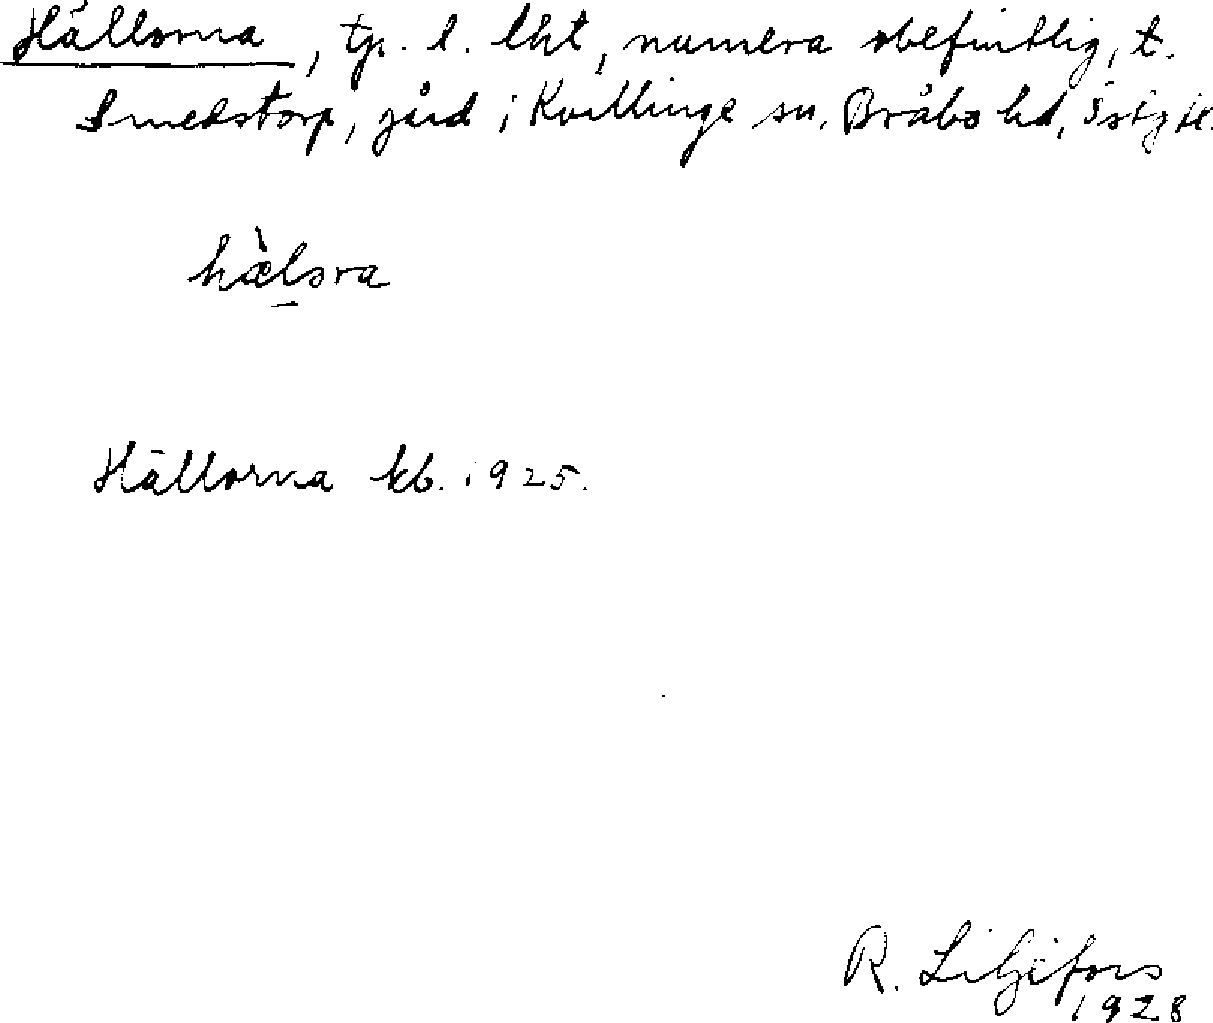 Hällorna, tp. l. lht, numera obefintlig, t.
Smedstorp, gård i Kvillinge sn, Bråbo hd, Östg. l.
hæ̀lɔra
Hällorna kb. 1925.
R. Liljefors
1928